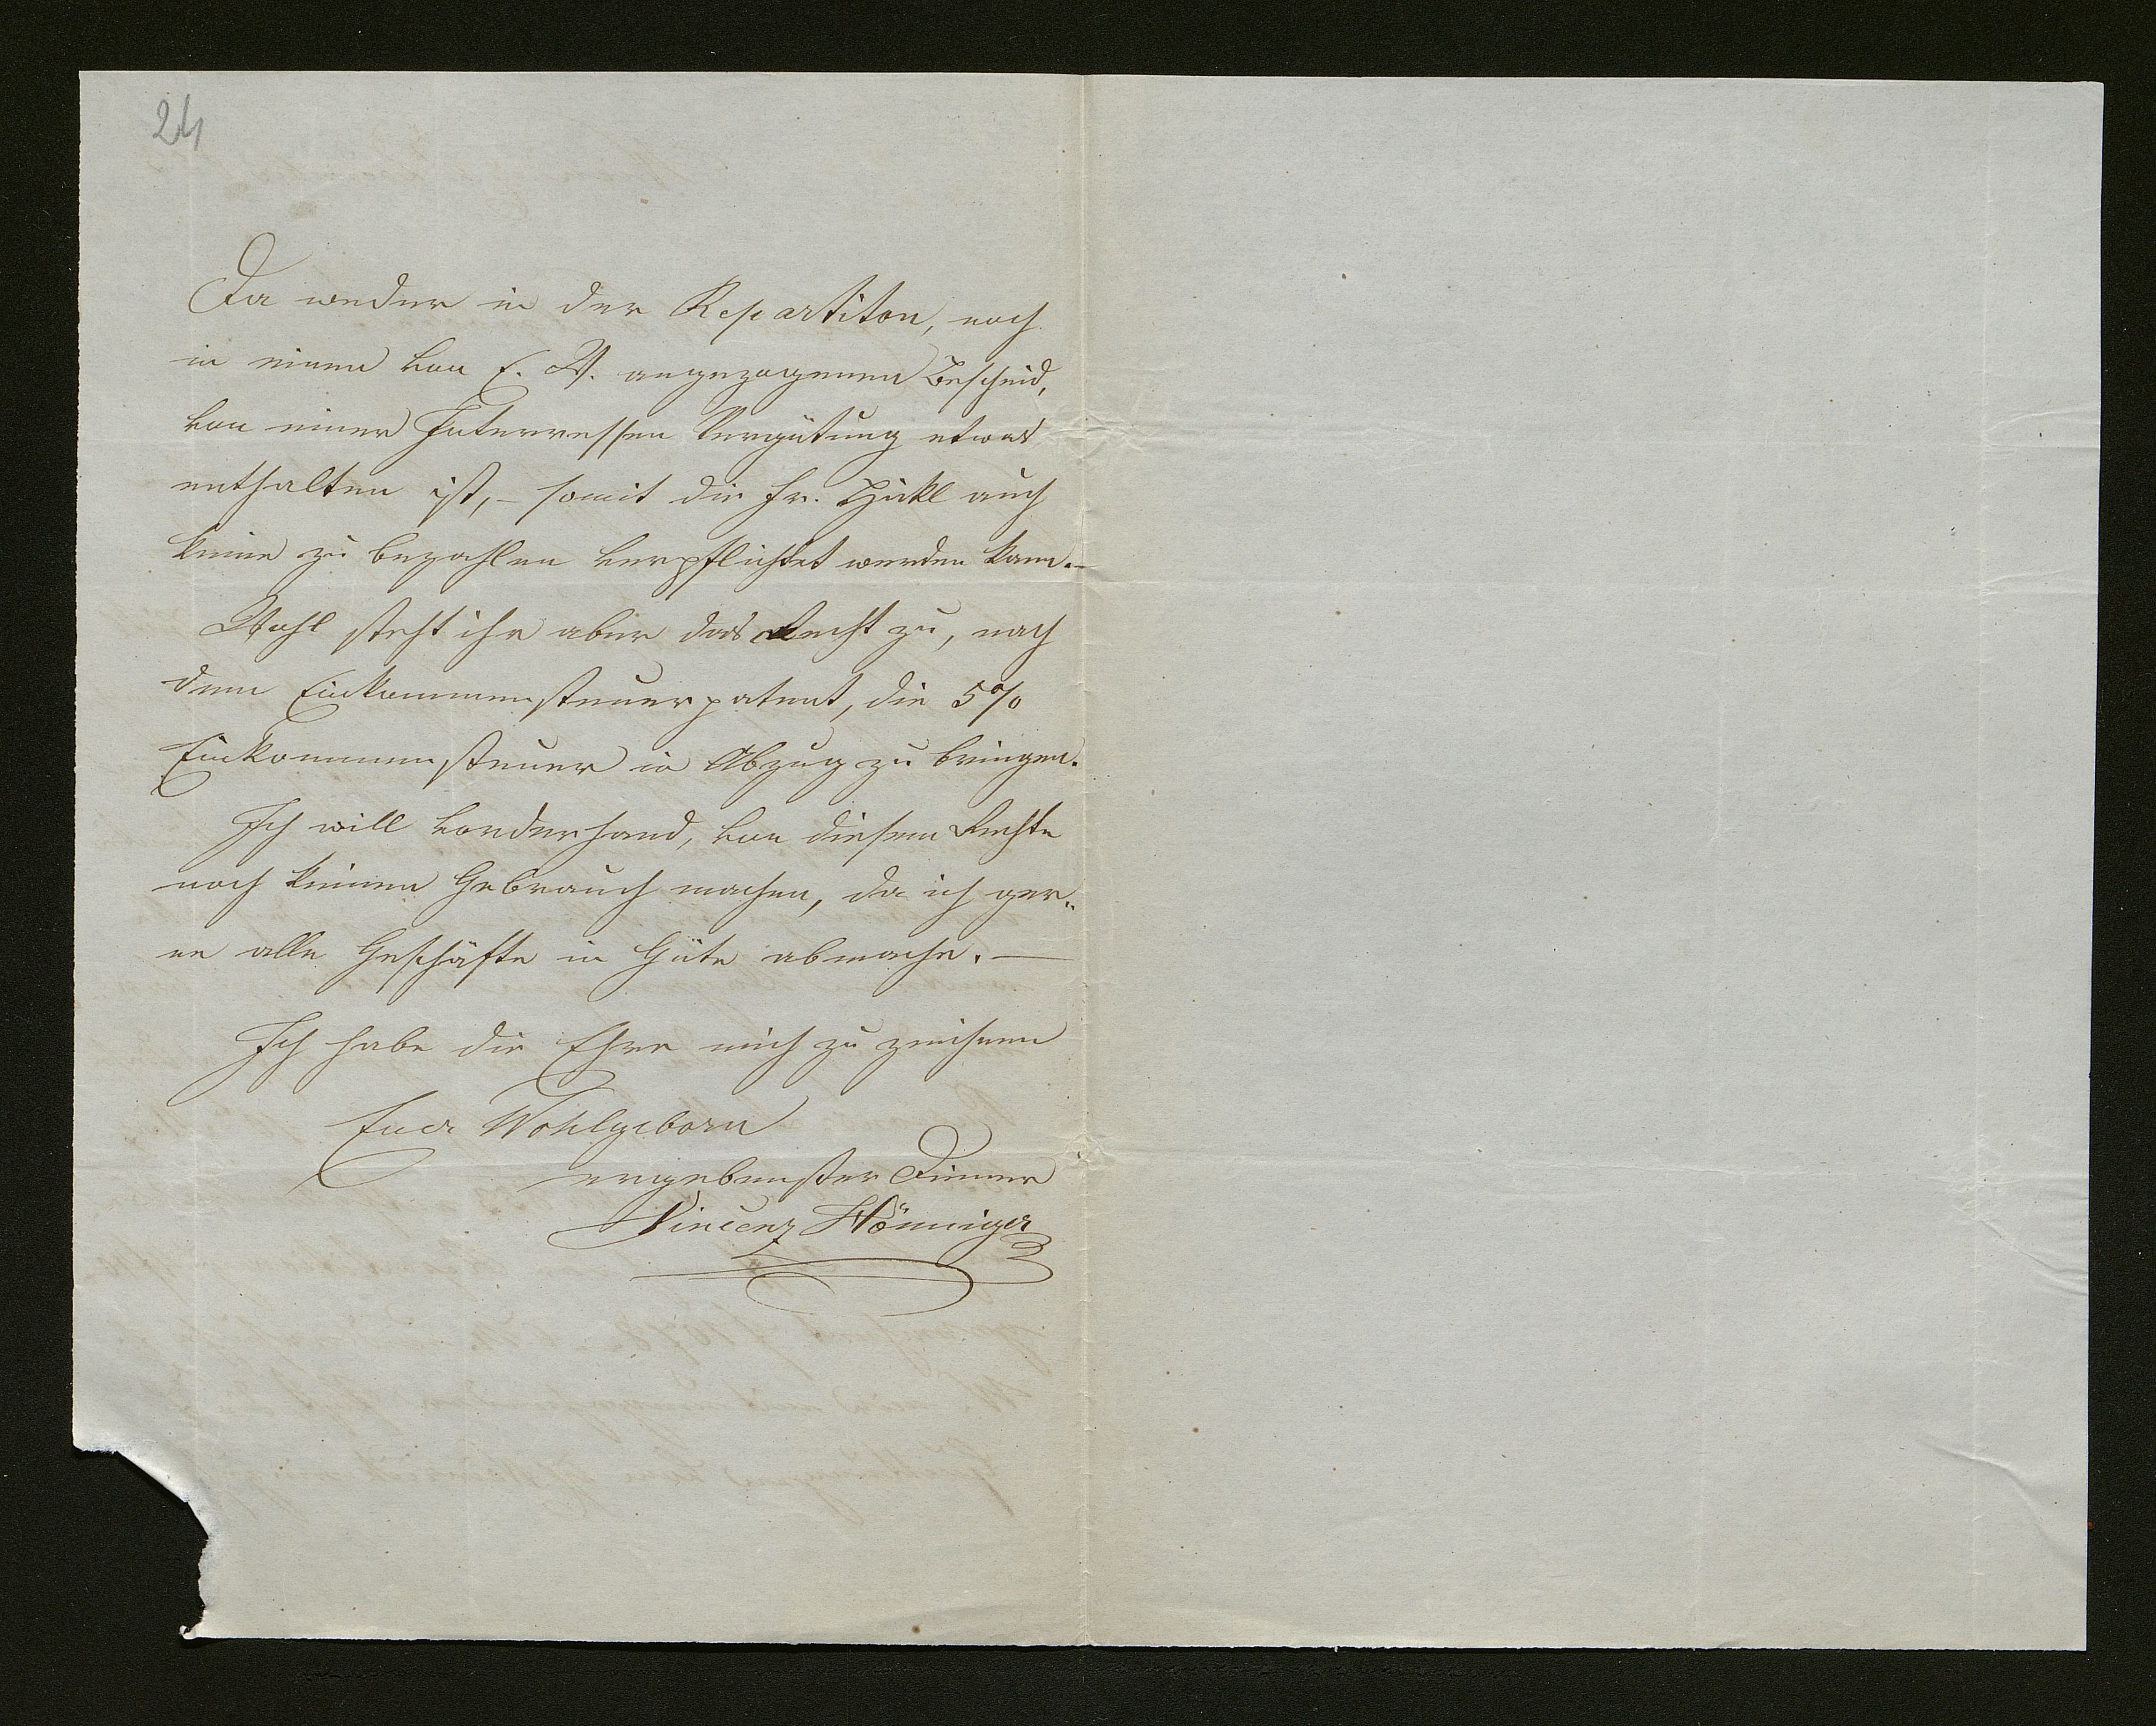 24
Da weder in der Repartiton, noch
in einem von E. W. angezogenen Bescheid,
von einer Interressen Vergütung etwas
enthalten ist, – somit die Fr. Hickl auch
keine zu bezahlen verpflichtet werden kann. –
Wohl steht ihr aber das Recht zu, nach
dem Einkommensteuerpatent, die 5%
Einkommensteuer in Abzug zu bringen.
Ich will vorderhand, von diesem Rechte
noch keinen Gebrauch machen, da ich ger„
ne alle Geschäfte in Güte abmache. —
Ich habe die Ehre mich zu zeichnen
Euer Wohlgeborn
ergebenster Diener
Vincenz Hönniger